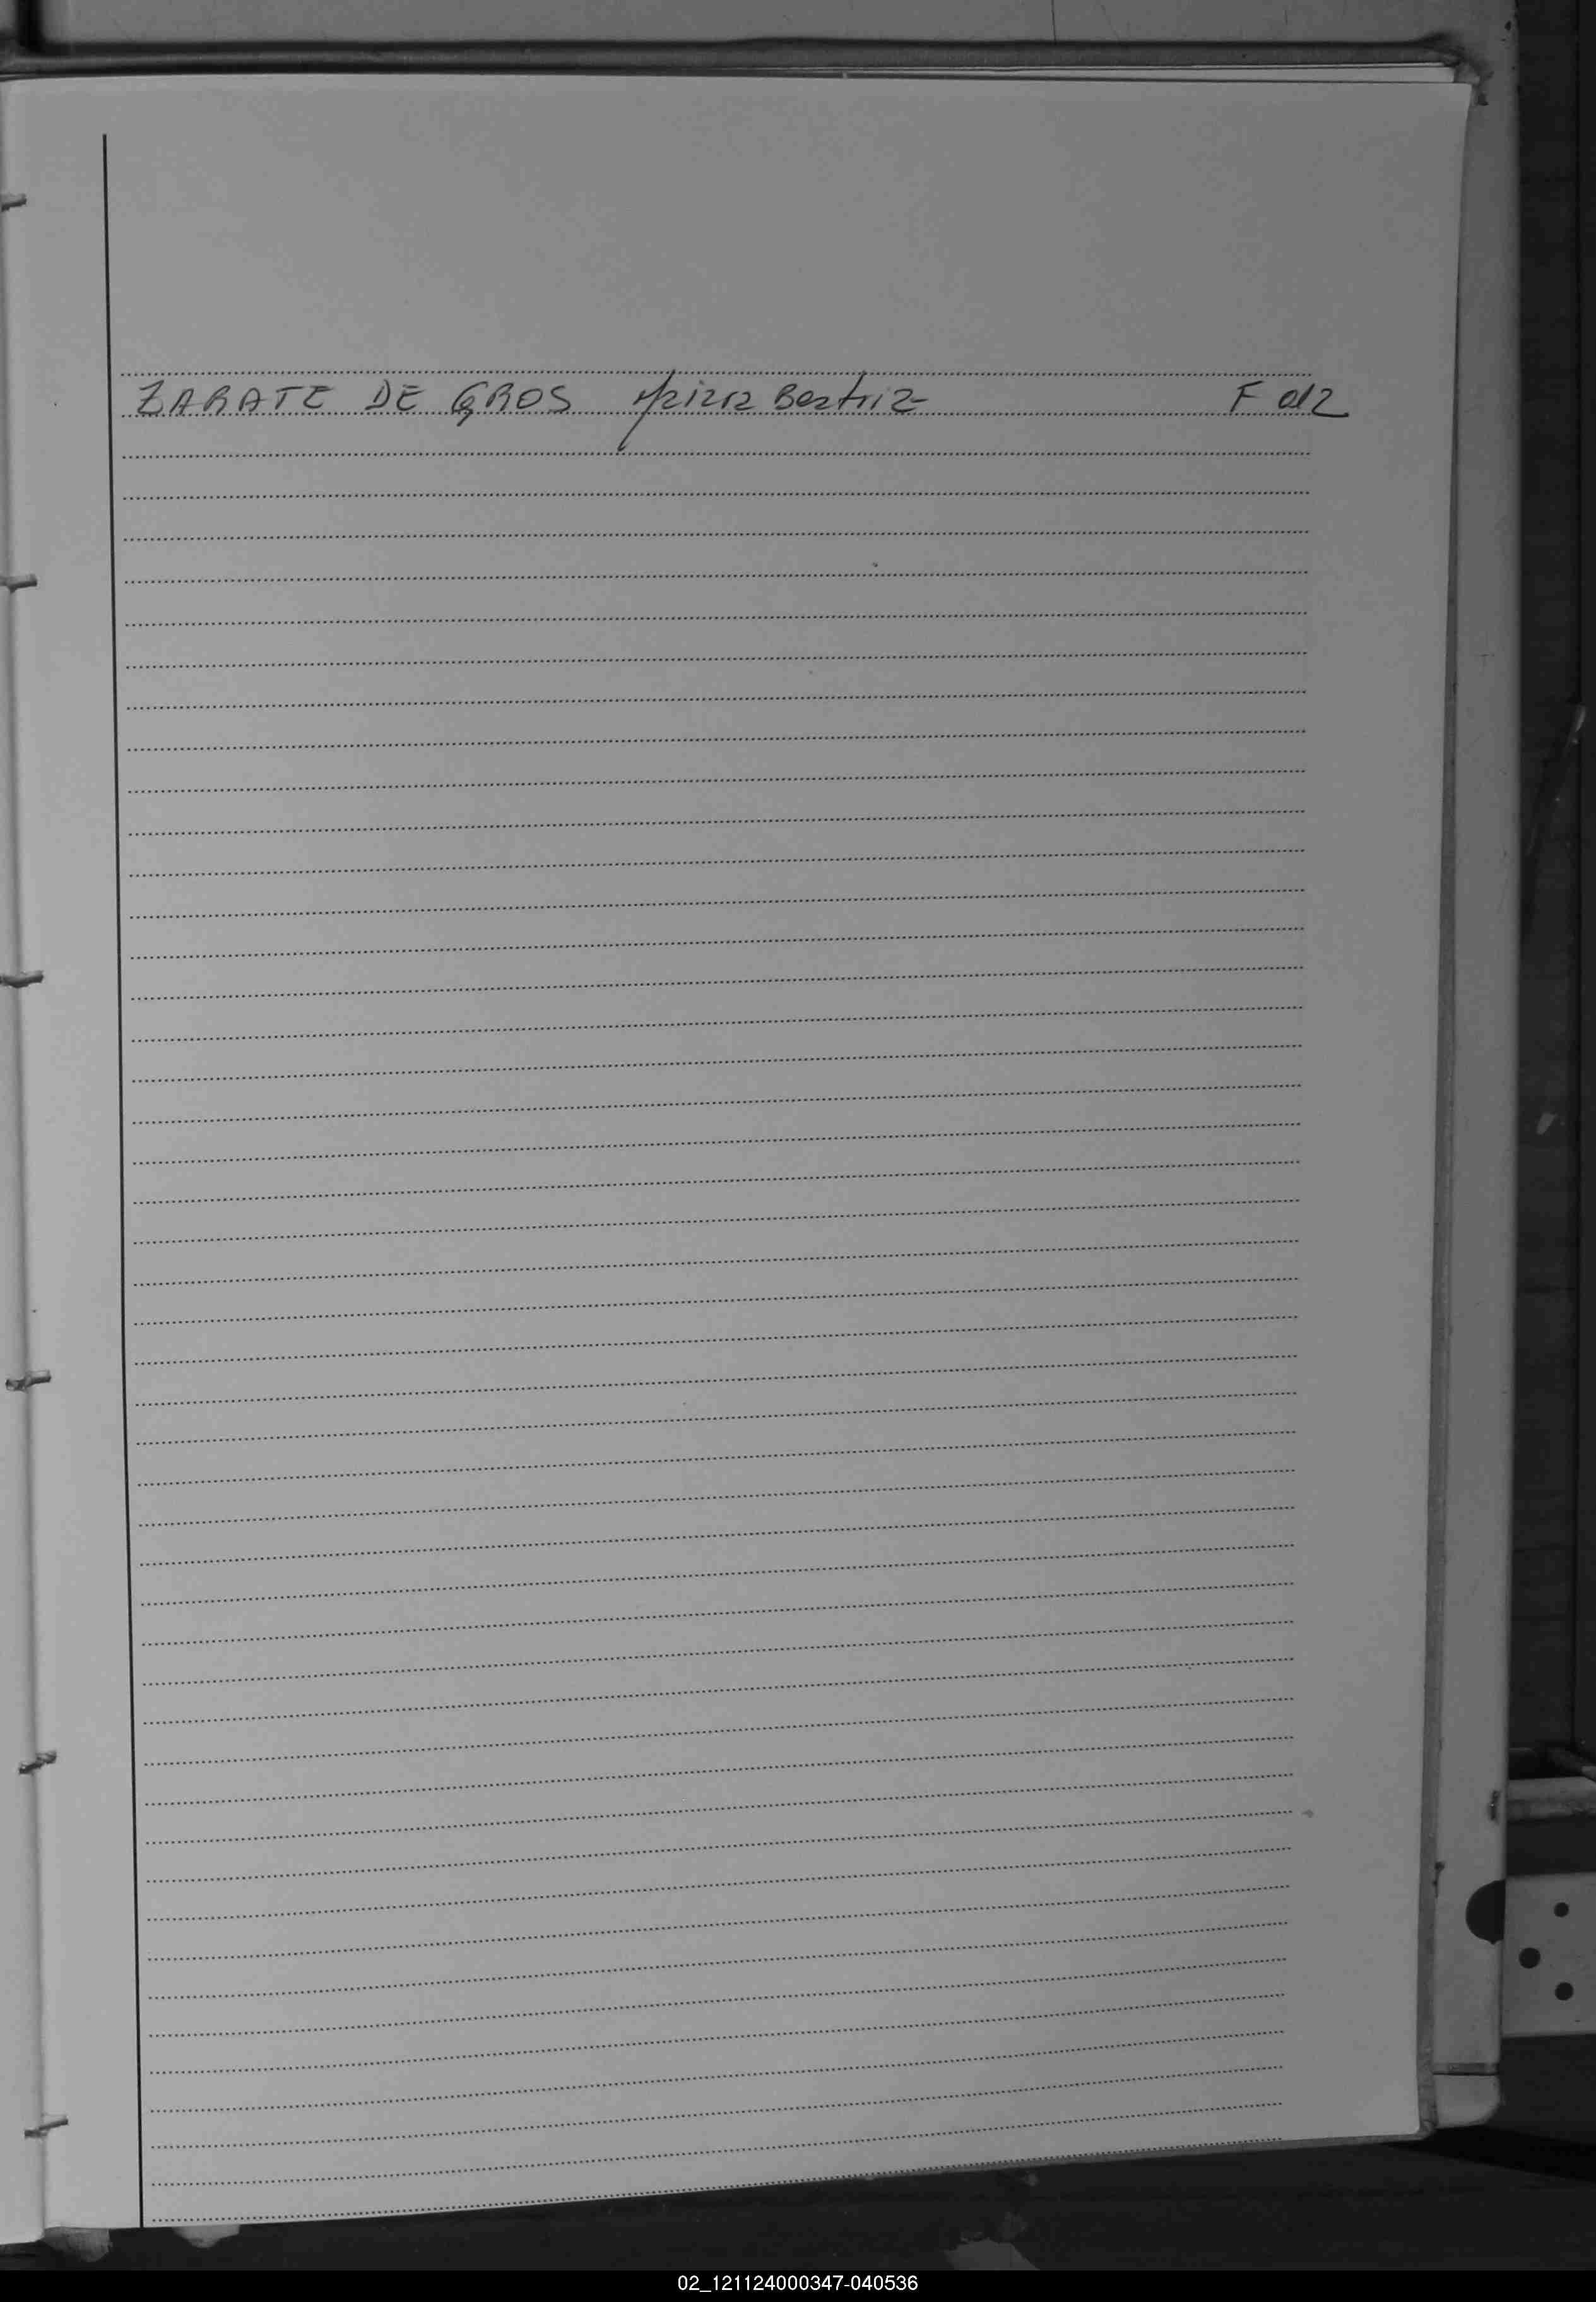 ZARATE DE GROS Beatriz F 012
02_121124000347-040536